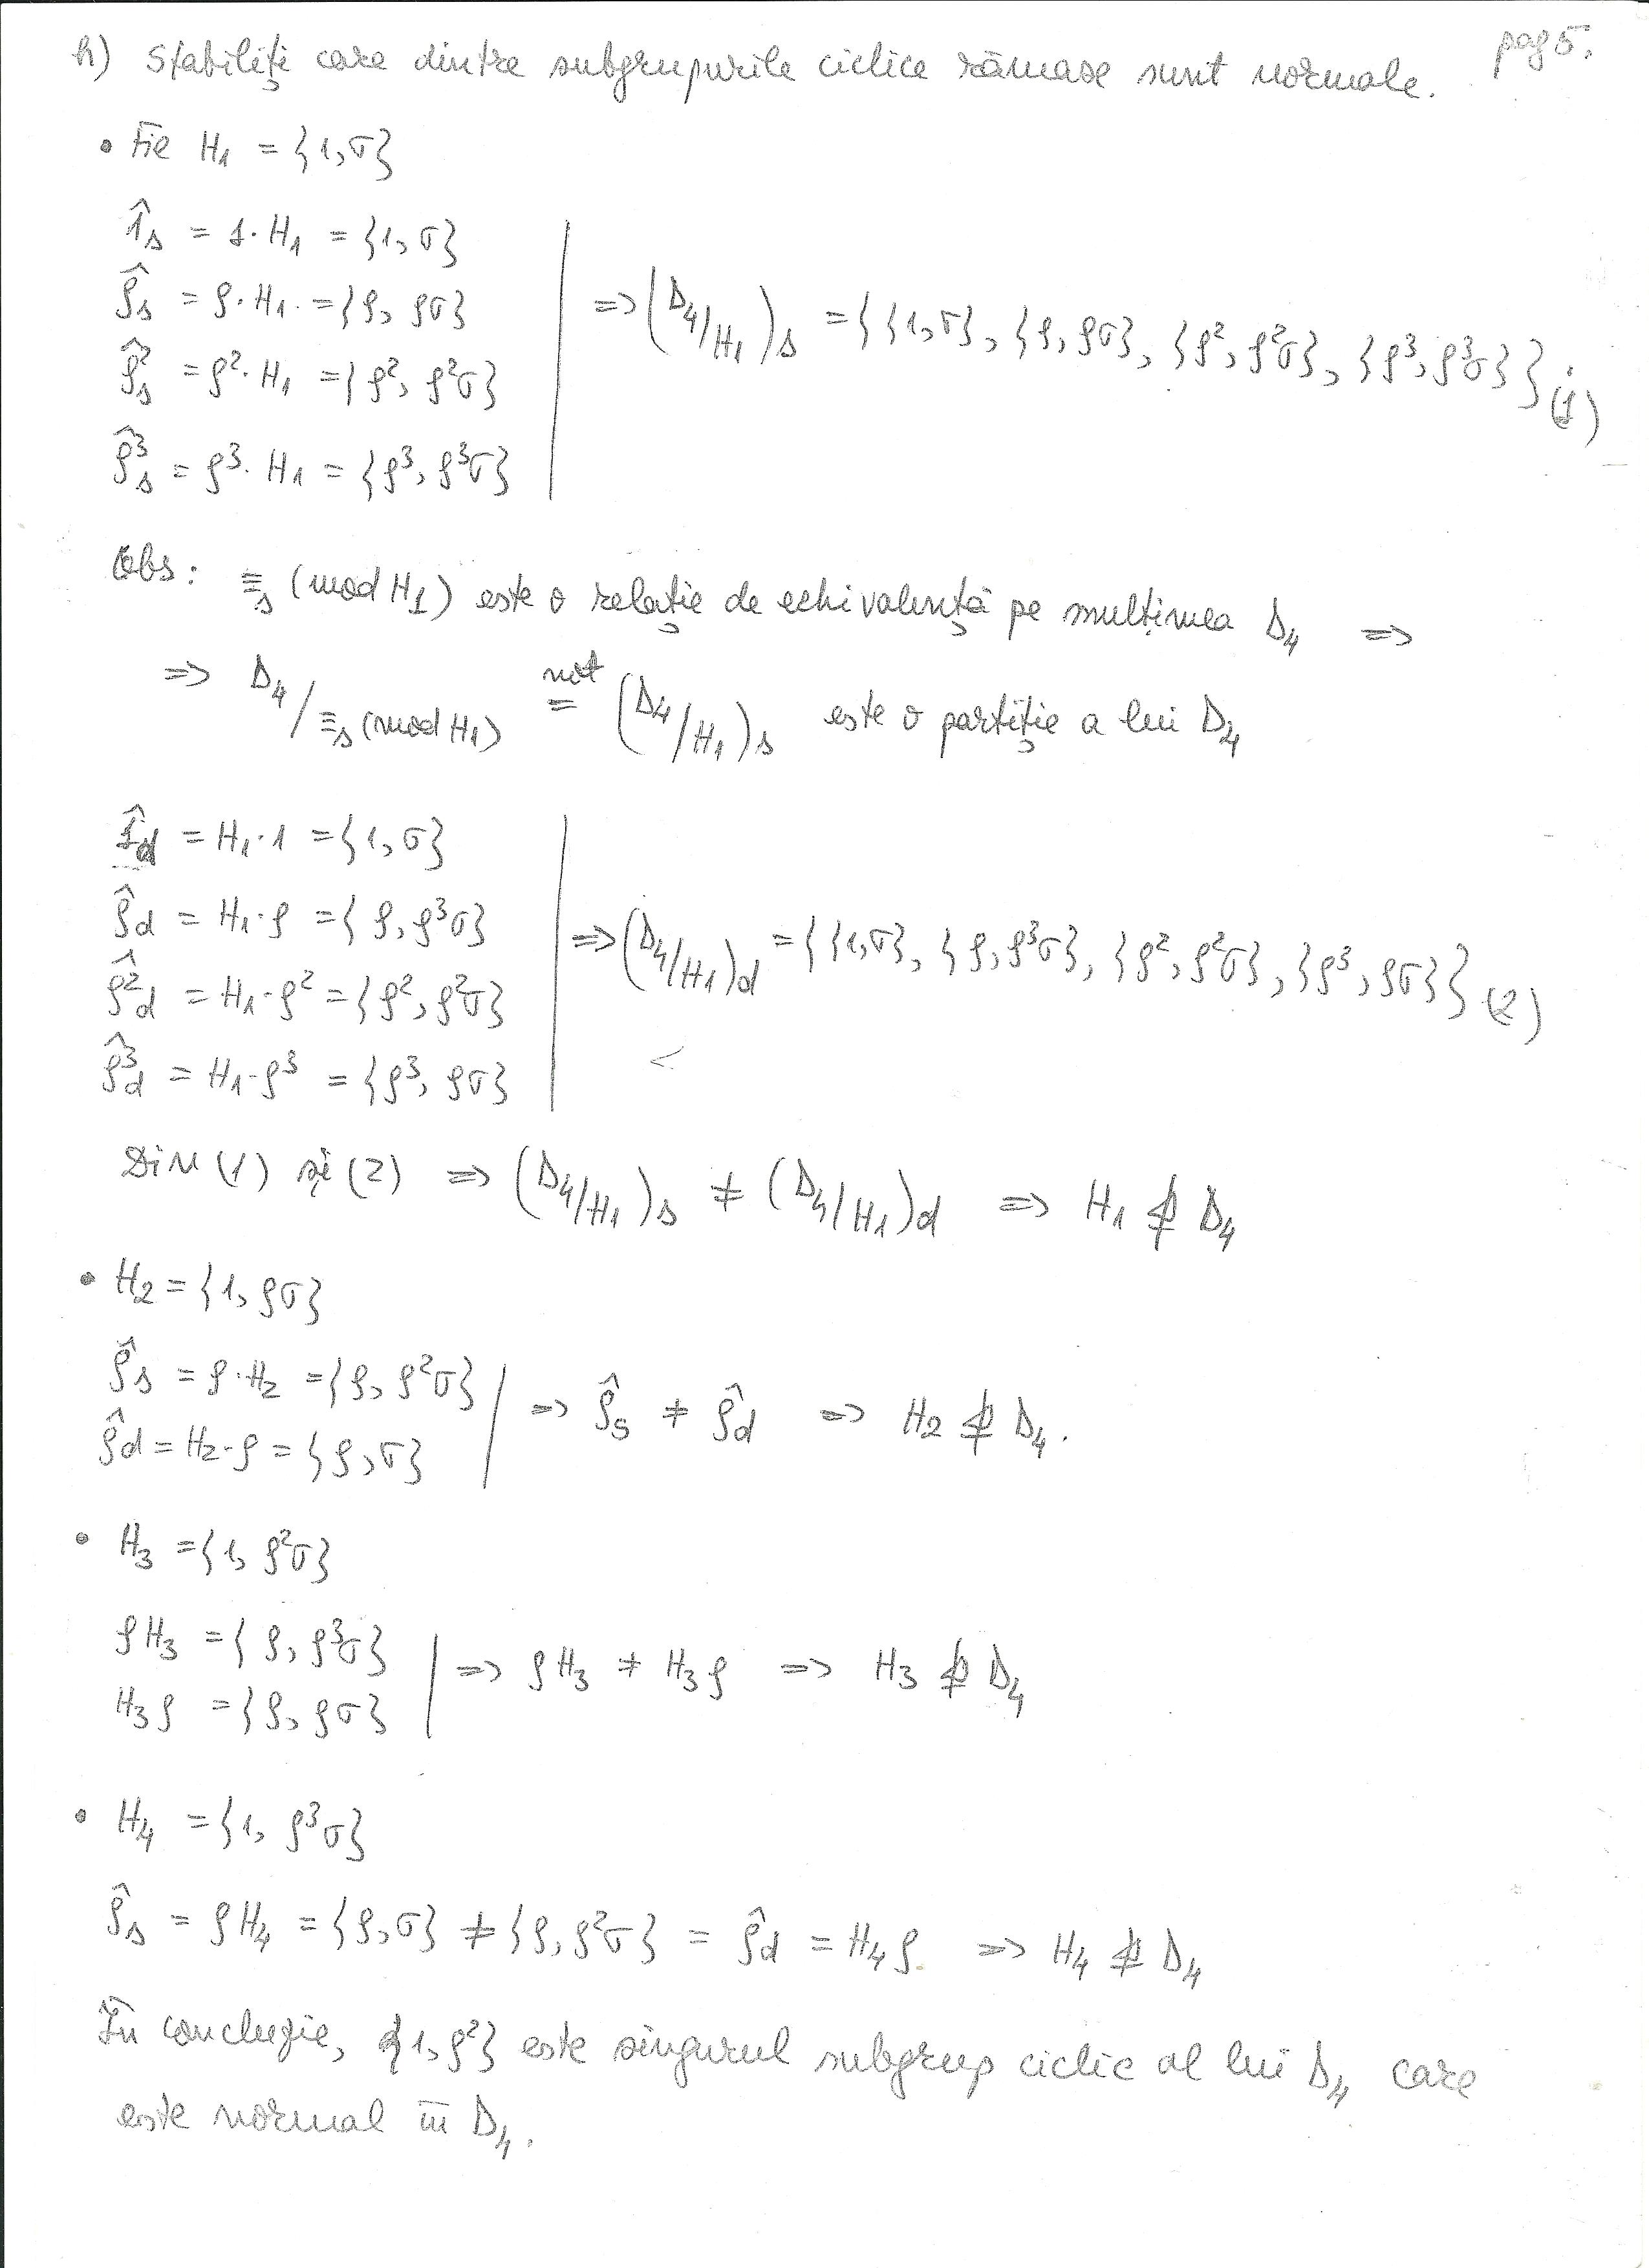 pag 5.
h) Stabiliți care dintre subgrupurile ciclice rămase sunt normale.
• Fie H₁ = {1, σ}
1̂ₛ = 1·H₁ = {1, σ}
ρ̂ₛ = ρ·H₁ = {ρ, ρσ}
ρ̂²ₛ = ρ²·H₁ = {ρ², ρ²σ}
ρ̂³ₛ = ρ³·H₁ = {ρ³, ρ³σ}
=> (D₄/H₁)ₛ = {{1, σ}, {ρ, ρσ}, {ρ², ρ²σ}, {ρ³, ρ³σ}} (1)
Obs: ≡ₛ (mod H₁) este o relație de echivalență pe mulțimea D₄ =>
=> D₄/≡ₛ(mod H₁) not= (D₄/H₁)ₛ este o partiție a lui D₄
1̂d = H₁·1 = {1, σ}
ρ̂d = H₁·ρ = {ρ, ρ³σ}
ρ̂²d = H₁·ρ² = {ρ², ρ²σ}
ρ̂³d = H₁·ρ³ = {ρ³, ρσ}
=> (D₄/H₁)d = {{1, σ}, {ρ, ρ³σ}, {ρ², ρ²σ}, {ρ³, ρσ}} (2)
Din (1) și (2) => (D₄/H₁)ₛ ≠ (D₄/H₁)d => H₁ ⋬ D₄
• H₂ = {1, ρσ}
ρ̂ₛ = ρ·H₂ = {ρ, ρ²σ}
ρ̂d = H₂·ρ = {ρ, σ}
=> ρ̂ₛ ≠ ρ̂d => H₂ ⋬ D₄.
• H₃ = {1, ρ²σ}
ρH₃ = {ρ, ρ³σ}
H₃ρ = {ρ, ρσ}
=> ρH₃ ≠ H₃ρ => H₃ ⋬ D₄
• H₄ = {1, ρ³σ}
ρ̂ₛ = ρH₄ = {ρ, σ} ≠ {ρ, ρ²σ} = ρ̂d = H₄ρ => H₄ ⋬ D₄
În concluzie, {1, ρ²} este singurul subgrup ciclic al lui D₄ care
este normal în D₄.